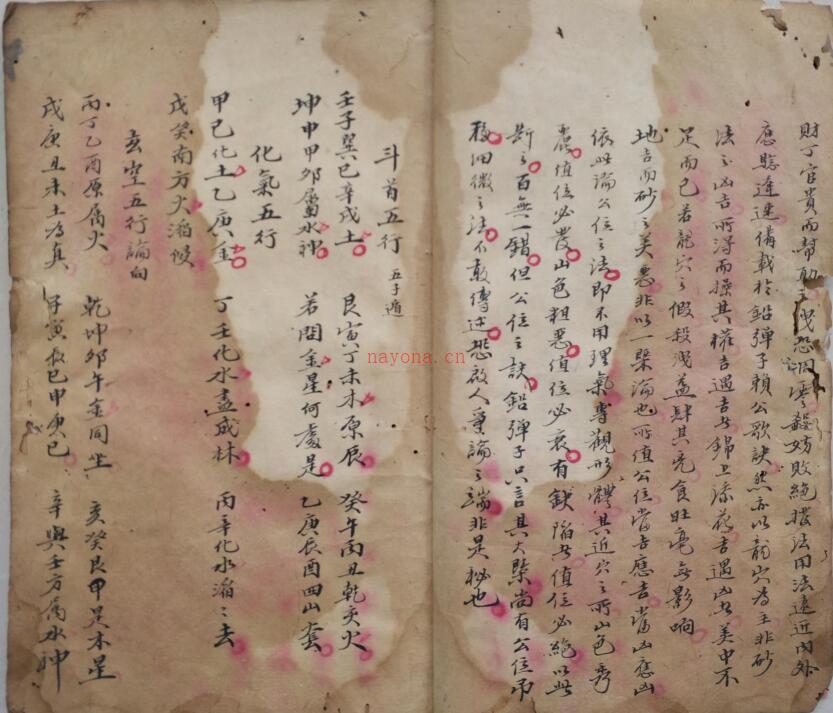 財丁官貴而幫助之洩恐凋零殺妨敗絕撥法用法遠近內外
應驗違速備載於鉛彈子賴公歌訣然亦以龍穴為主非砂
法之凶吉所得而操其權吉遇吉如錦上添花吉遇凶如美中不
足而已若龍穴之假殺洩益肆其兇食旺毫無影响
地吉而砂之美惡非以一槩論也所值公位當吉應吉當凶應凶
依此論公位之法即不用理氣專觀形體其近穴之所山色秀
麗值位必發山色粗惡值位必衰有缺陷如值位必絕以此
斷之百無一錯但公位之訣鉛彈子只言其大槩尚有公位吊
移細微之法不敢傳述恐啟人爭論之端非是秘也
斗首五行 五子遁
壬子巽巳辛戌土 艮寅丁未木原辰 癸午丙丑乾亥火
坤申甲卯屬水神 若問金星何處是 乙庚辰酉四山套
化氣五行
甲己化土乙庚金 丁壬化木盡成林 丙辛化水滔〻去
戊癸南方火滔候
玄空五行論向
丙丁乙酉原屬火 乾坤卯午金同坐 亥癸艮甲是木星
戌庚丑未土為真 子寅辰巳甲庚巳 辛與壬方屬水神
nayona.cn